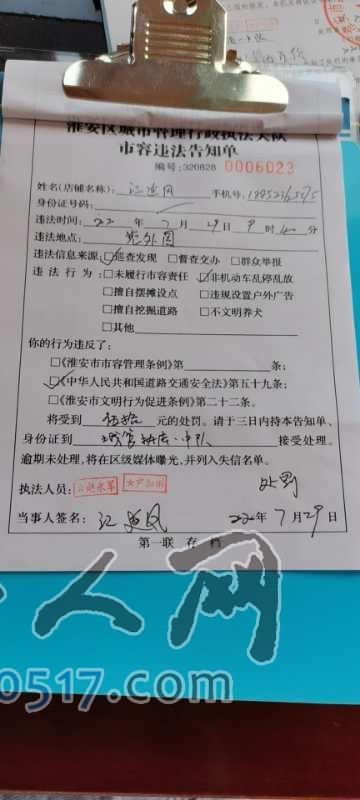 淮安区城市管理行政执法大队
市容违法告知单
编号:320828 0006023
姓名(店铺名称): 江 风 手机号:
身份证号码:
违法时间: 22 年 7 月 29 日 9 时 40 分
违法地点: 外国
违法信息来源: ☑巡查发现 □督查交办 □群众举报
违法行为: □未履行市容责任 ☑非机动车乱停乱放
□擅自摆摊设点 □违规设置户外广告
□擅自挖掘道路 □不文明养犬
□其他
你的行为违反了:
□《淮安市市容管理条例》第 条;
☑《中华人民共和国道路交通安全法》第五十九条;
□《淮安市文明行为促进条例》第二十二条。
将受到 伍拾 元的处罚。请于三日内持本告知单、
身份证到 城管 中队 接受处理。
逾期未处理,将在区级媒体曝光,并列入失信名单。
执法人员: 处罚
当事人签名: 江 风 22年 7 月 29日
第一联 存档
人网
0517.com